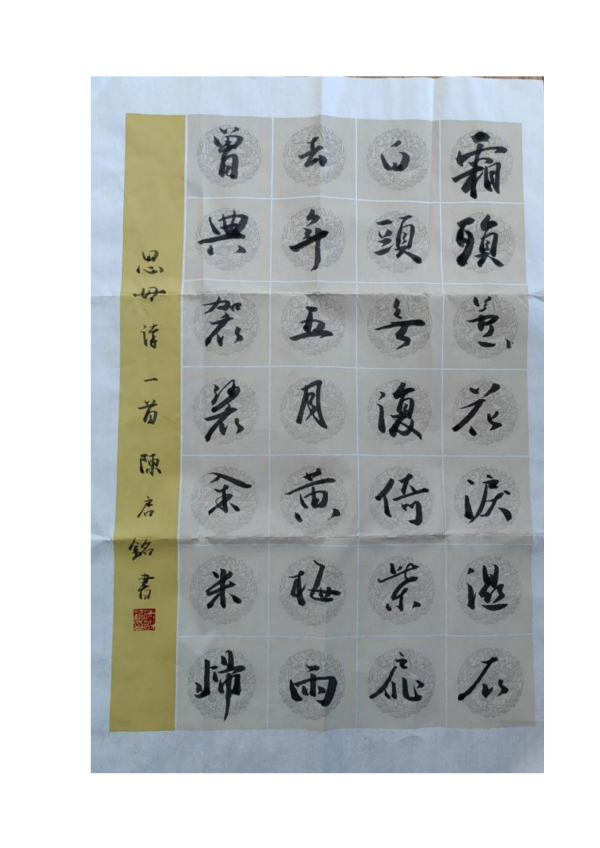 霜殞蘆花淚濕衣
白頭無復倚柴扉
去年五月黄梅雨
曾典袈裟籴米歸
思母詩一首 陳启銘書